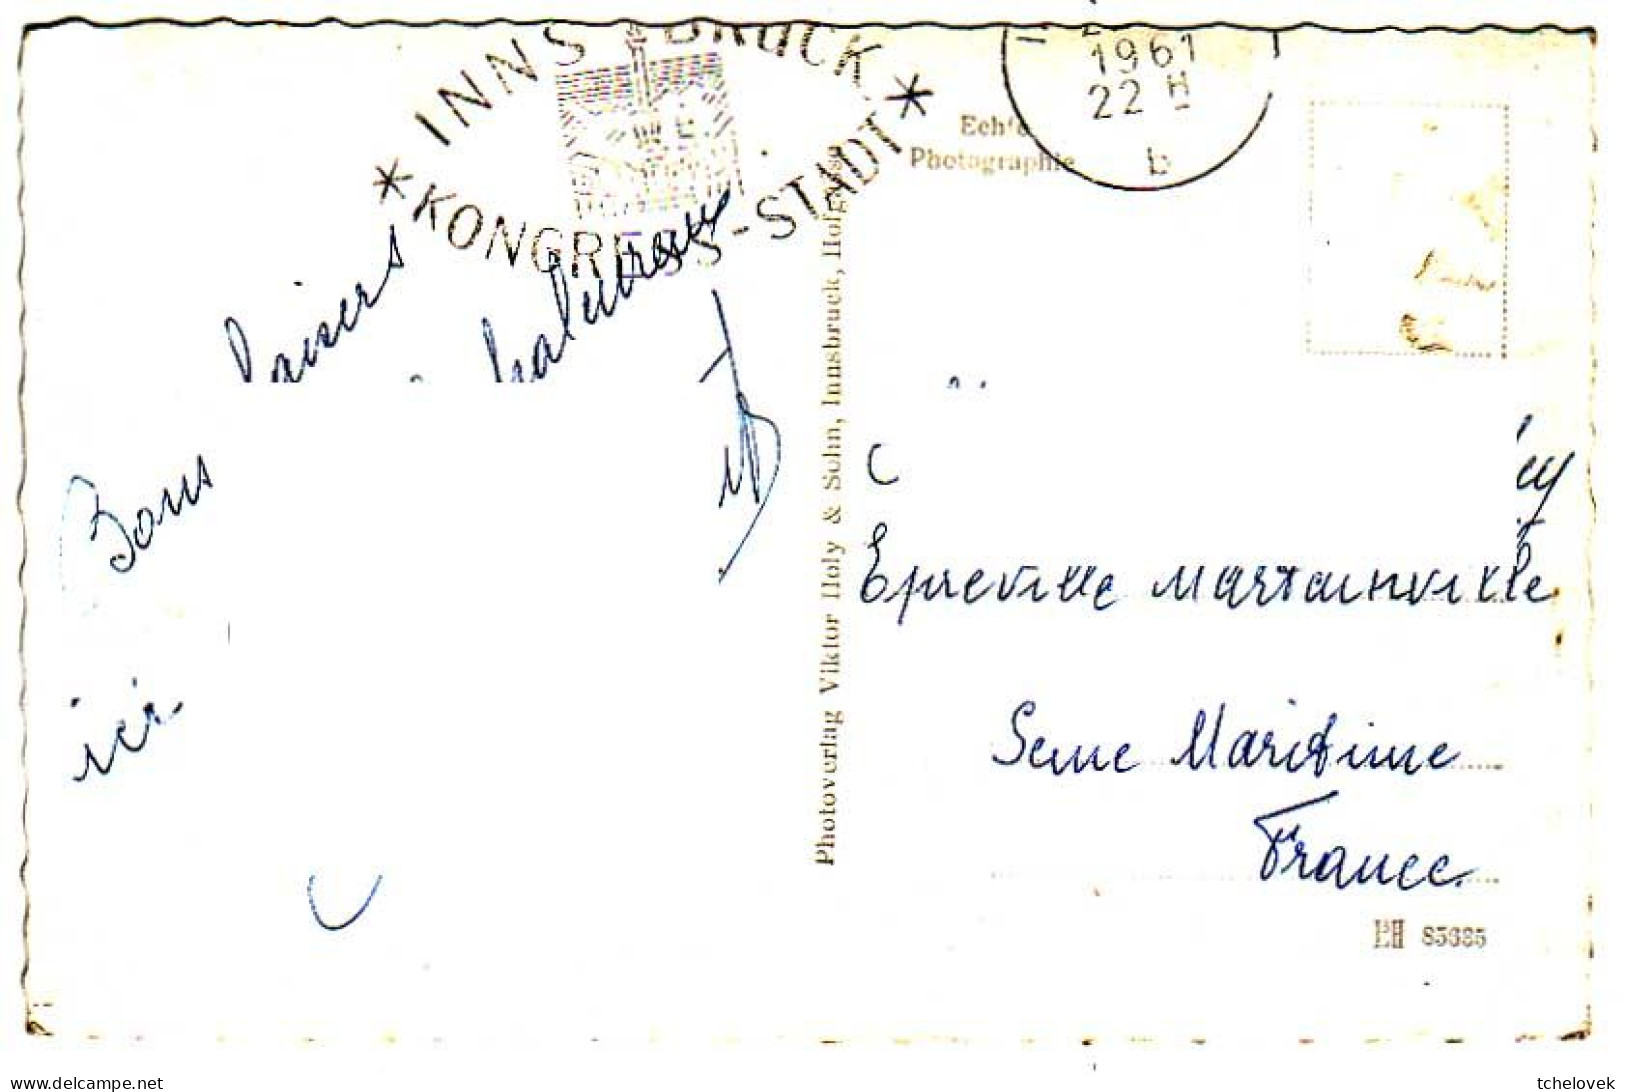 * INNSBRUCK *
KONGRESS-STADT
1961
22 H
b
Echte
Photographie
Bons baisers
ici
Photoverlag Viktor Holy & Sohn, Innsbruck, Hofgasse
Epreville Martainville
Seine Maritime
France
85685
tchelovek